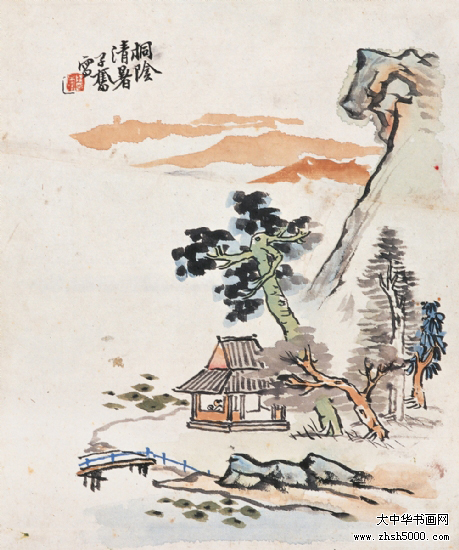 桐陰
清暑
子奮
寫
大中华书画网
www.zhsh5000.com